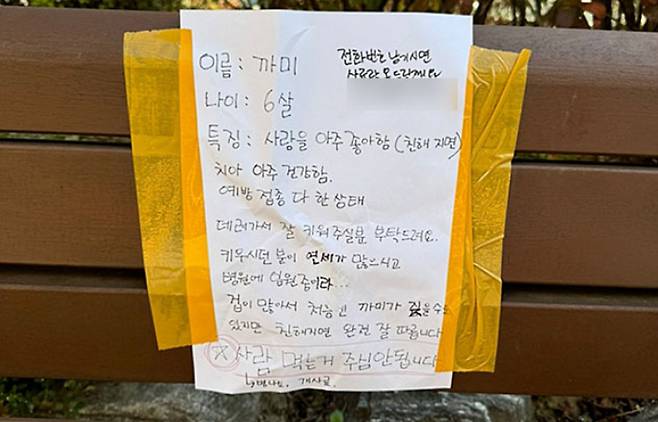 이름: 까미
전화번호 남기시면
사료랑 오드릴게요
나이: 6살
특징: 사람을 아주 좋아함 (친해지면)
치아 아주 건강함.
예방접종 다 한 상태
데려가서 잘 키워주실분 부탁드려요.
키우시던 분이 연세가 많으시고
병원에 입원중이라...
겁이 많아서 처음엔 까미가 짖을수도
있지만 친해지면 완전 잘 따릅니다
☆ 사람 먹는거 주심 안됩니다
개사료